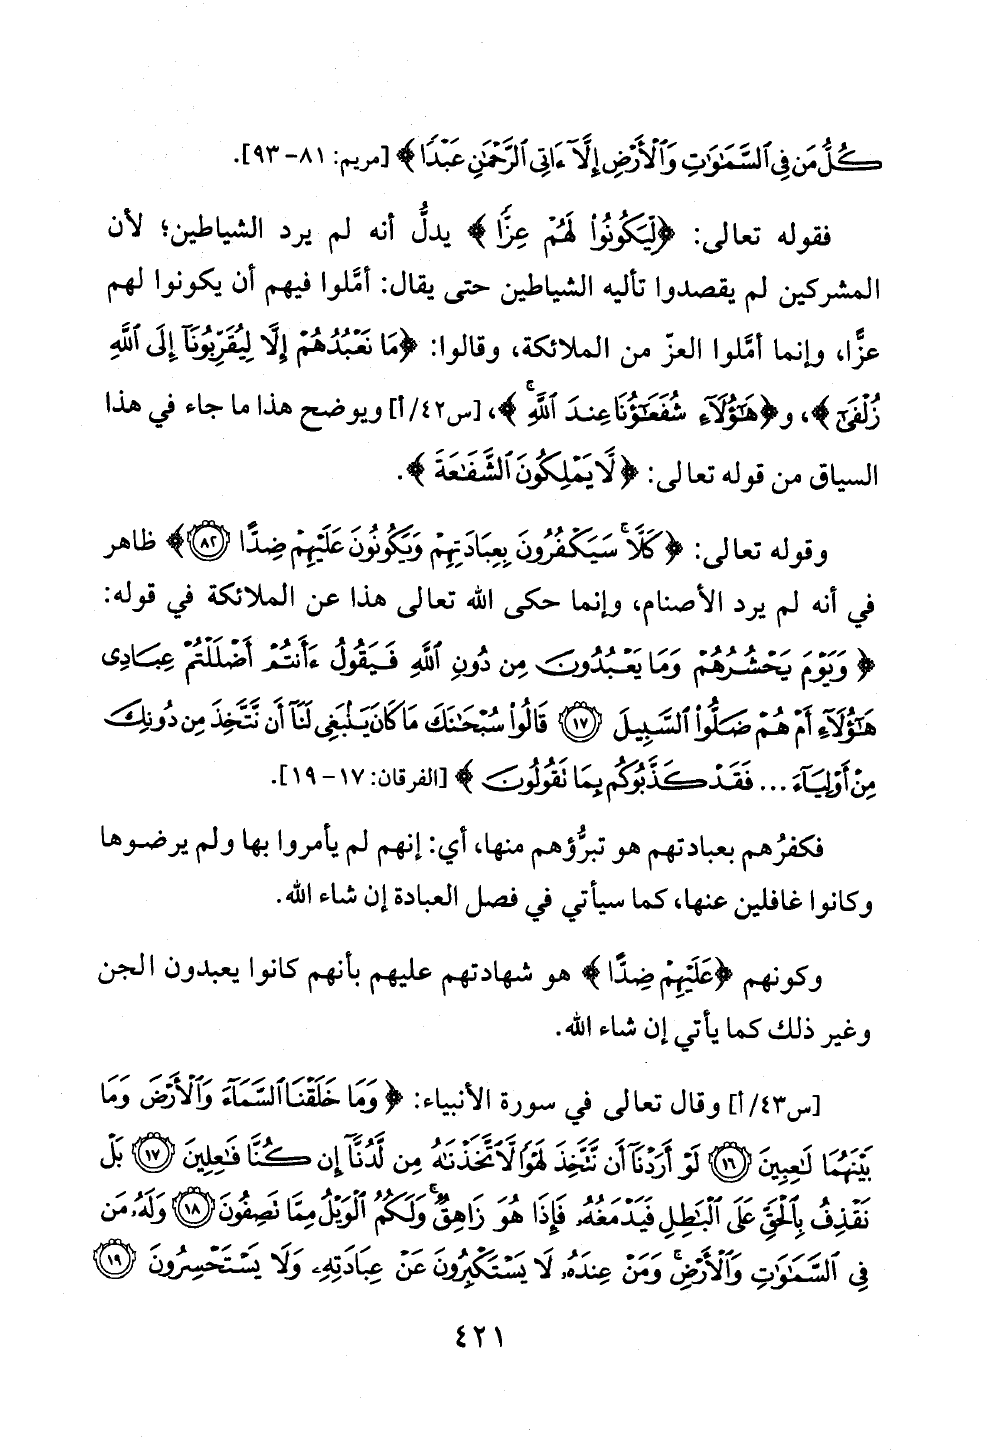 كُلُّ مَن فِي ٱلسَّمَٰوَٰتِ وَٱلْأَرْضِ إِلَّآ ءَاتِي ٱلرَّحْمَٰنِ عَبْدًا ﴾ [مريم: ٨١- ٩٣].
فقوله تعالى: ﴿لِّيَكُونُوا۟ لَهُمْ عِزًّا ﴾ يدلُّ أنه لم يرد الشياطين؛ لأن
المشركين لم يقصدوا تأليه الشياطين حتى يقال: أمَّلوا فيهم أن يكونوا لهم
عزًّا، وإنما أمَّلوا العزّ من الملائكة، وقالوا: ﴿مَا نَعْبُدُهُمْ إِلَّا لِيُقَرِّبُونَآ إِلَى ٱللَّهِ
زُلْفَىٰٓ ﴾، و﴿هَٰٓؤُلَآءِ شُفَعَٰٓؤُنَا عِندَ ٱللَّهِ ۚ ﴾، [س٤٢/ أ] ويوضح هذا ما جاء في هذا
السياق من قوله تعالى: ﴿لَّا يَمْلِكُونَ ٱلشَّفَٰعَةَ ﴾.
وقوله تعالى: ﴿كَلَّا ۚ سَيَكْفُرُونَ بِعِبَادَتِهِمْ وَيَكُونُونَ عَلَيْهِمْ ضِدًّا ٨٢﴾ ظاهر
في أنه لم يرد الأصنام، وإنما حكى الله تعالى هذا عن الملائكة في قوله:
﴿ وَيَوْمَ يَحْشُرُهُمْ وَمَا يَعْبُدُونَ مِن دُونِ ٱللَّهِ فَيَقُولُ ءَأَنتُمْ أَضْلَلْتُمْ عِبَادِى
هَٰٓؤُلَآءِ أَمْ هُمْ ضَلُّوا۟ ٱلسَّبِيلَ ١٧ قَالُوا۟ سُبْحَٰنَكَ مَا كَانَ يَنۢبَغِى لَنَآ أَن نَّتَّخِذَ مِن دُونِكَ
مِنْ أَوْلِيَآءَ ... فَقَدْ كَذَّبُوكُم بِمَا تَقُولُونَ ﴾ [الفرقان: ١٧- ١٩].
فكفرُهم بعبادتهم هو تبرُّؤهم منها، أي: إنهم لم يأمروا بها ولم يرضوها
وكانوا غافلين عنها، كما سيأتي في فصل العبادة إن شاء الله.
وكونهم ﴿عَلَيْهِمْ ضِدًّا ﴾ هو شهادتهم عليهم بأنهم كانوا يعبدون الجن
وغير ذلك كما يأتي إن شاء الله.
[س٤٣/ أ] وقال تعالى في سورة الأنبياء: ﴿ وَمَا خَلَقْنَا ٱلسَّمَآءَ وَٱلْأَرْضَ وَمَا
بَيْنَهُمَا لَٰعِبِينَ ١٦ لَوْ أَرَدْنَآ أَن نَّتَّخِذَ لَهْوًا لَّٱتَّخَذْنَٰهُ مِن لَّدُنَّآ إِن كُنَّا فَٰعِلِينَ ١٧ بَلْ
نَقْذِفُ بِٱلْحَقِّ عَلَى ٱلْبَٰطِلِ فَيَدْمَغُهُۥ فَإِذَا هُوَ زَاهِقٌ ۚ وَلَكُمُ ٱلْوَيْلُ مِمَّا تَصِفُونَ ١٨ وَلَهُۥ مَن
فِي ٱلسَّمَٰوَٰتِ وَٱلْأَرْضِ ۚ وَمَنْ عِندَهُۥ لَا يَسْتَكْبِرُونَ عَنْ عِبَادَتِهِۦ وَلَا يَسْتَحْسِرُونَ ١٩
٤٢١